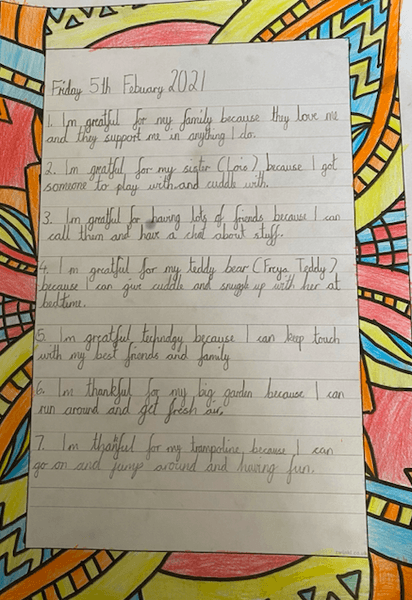 Friday 5th Febuary 2021
1. Im greatful for my family because they love me
and they support me in anything I do.
2. Im gratful for my sister (Lois) because I got
someone to play with and cuddle with.
3. Im greatful for having lots of friends because I can
call them and have a chat about stuff.
4. I m greatful for my teddy bear (Freya Teddy)
because I can give cuddle and snuggle up with her at
bedtime.
5. Im greatful technolgy because I can keep touch
with my best friends and family
6. Im thankful for my big garden because I can
run around and get fresh air.
7. Im thankful for my trampoline because I can
go on and jump around and having fun.